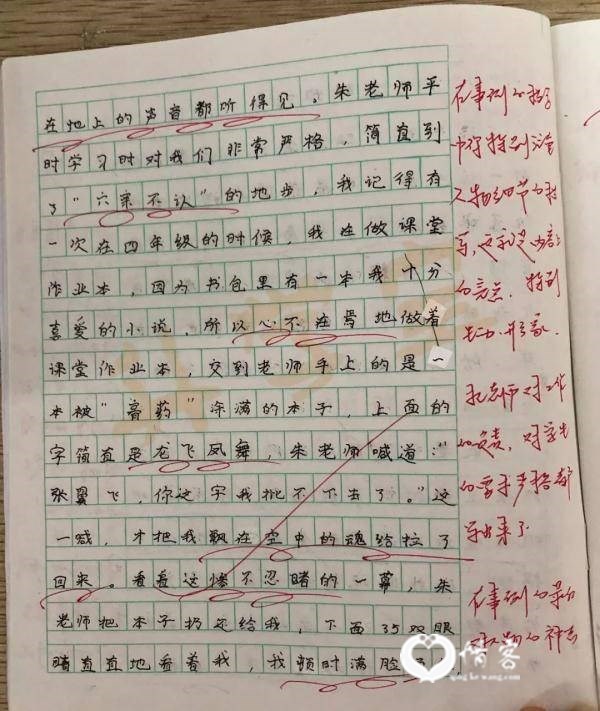 在地上的声音都听得见。朱老师平
时学习时对我们非常严格，简直到
了“六亲不认”的地步，我记得有
一次在四年级的时候，我在做课堂
作业本，因为书包里有一本我十分
喜爱的小说，所以心不在焉地做着
课堂作业本，交到老师手上的是一
本被“膏药”涂满的本子，上面的
字简直是龙飞凤舞，朱老师喊道：“
张翼飞，你这字我批不下去了。”这
一喊，才把我飘在空中的魂给拉了
回来。看着这惨不忍睹的一幕，朱
老师把本子扔还给我，下面35双眼
睛直直地看着我，我顿时满脸
在事例的
中你特别注意
人物细节的描
写，这就是文章
的亮点，特别
生动形象。
把老师对工作
的负责，对学生
的要求严格都
写出来了
在事例的
惜客
qing ke wang.com